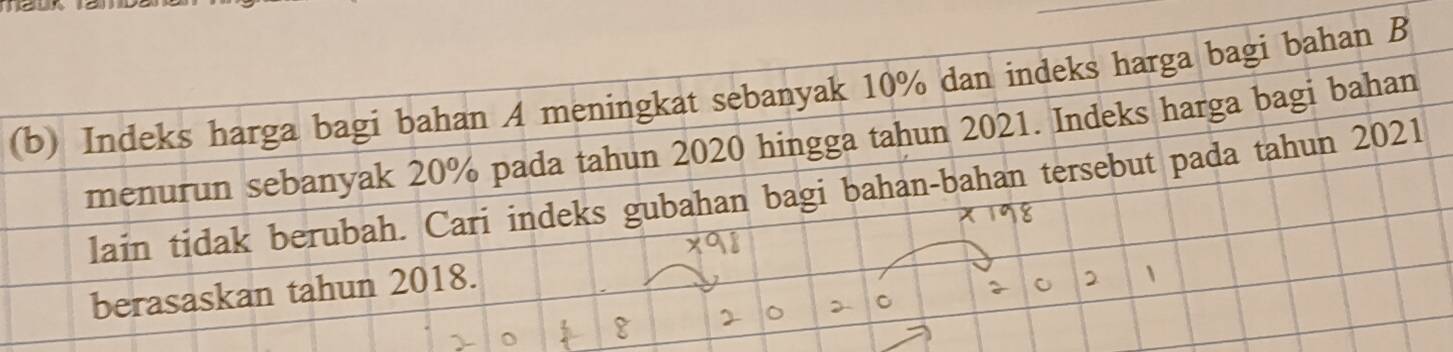 (b) Indeks harga bagi bahan A meningkat sebanyak 10% dan indeks harga bagi bahan B
menurun sebanyak 20% pada tahun 2020 hingga tahun 2021. Indeks harga bagi bahan
lain tidak berubah. Cari indeks gubahan bagi bahan-bahan tersebut pada tahun 2021
berasaskan tahun 2018.
x98 x198
2018 2020 2021